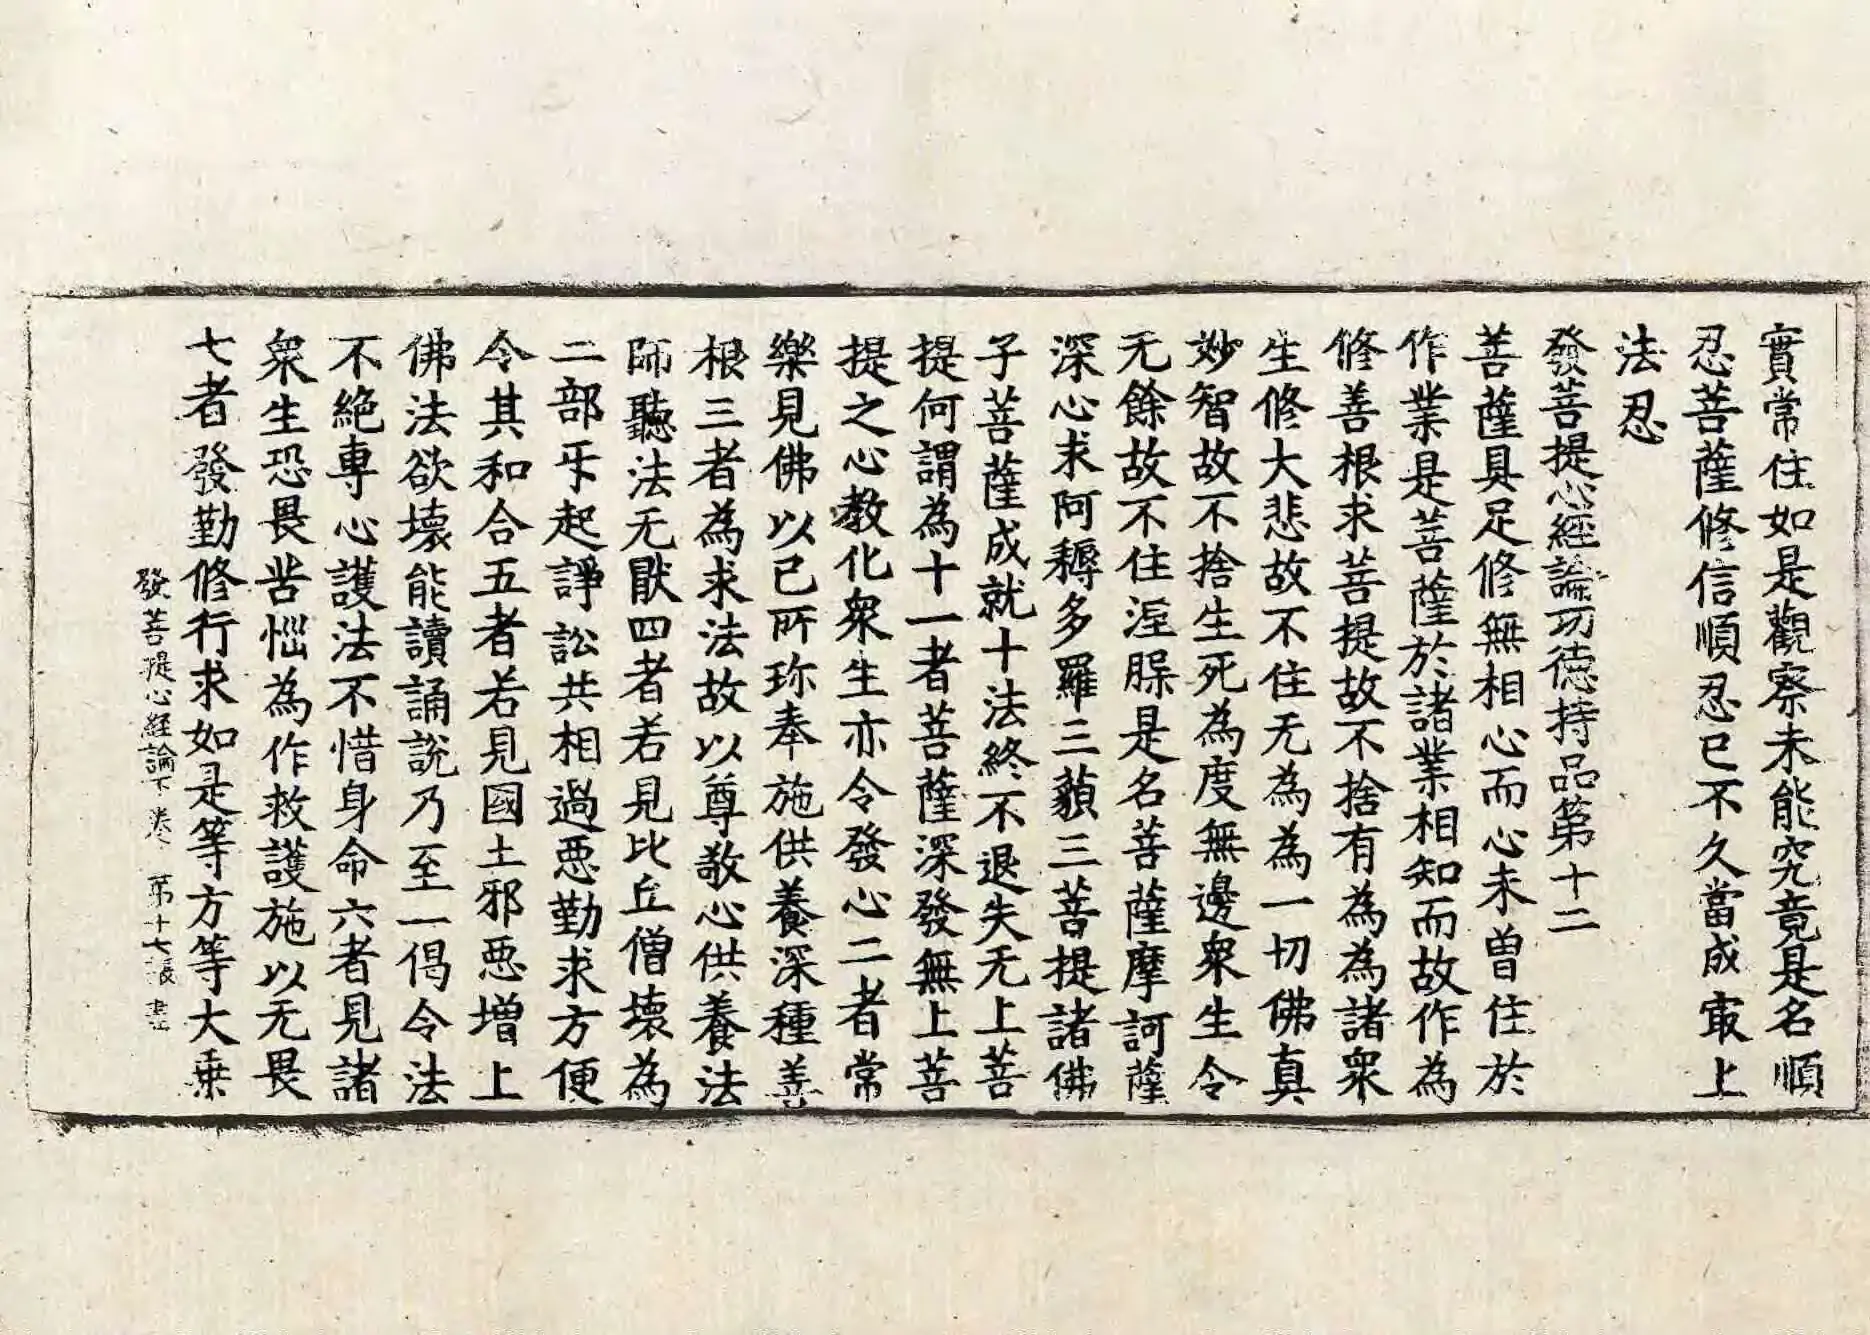 實常住如是觀察未能究竟是名順
忍菩薩修信順忍已不久當成㝡上
法忍
發菩提心經論功德持品第十二
菩薩具足修無相心而心未曾住於
作業是菩薩於諸業相知而故作為
修善根求菩提故不捨有為為諸衆
生修大悲故不住无為為一切佛真
妙智故不捨生死為度無邊衆生令
无餘故不住涅槃是名菩薩摩訶薩
深心求阿耨多羅三藐三菩提諸佛
子菩薩成就十法終不退失无上菩
提何謂為十一者菩薩深發無上菩
提之心教化衆生亦令發心二者常
樂見佛以已所珎奉施供養深種善
根三者為求法故以尊敬心供養法
師聽法无猒四者若見比丘僧壞為
二部㸦起諍訟共相過惡勤求方便
令其和合五者若見國土邪惡增上
佛法欲壞能讀誦說乃至一偈令法
不絕專心護法不惜身命六者見諸
衆生恐畏苦惱為作救護施以无畏
七者發勤修行求如是等方等大乗
發菩提心經論下卷 第十七張 書